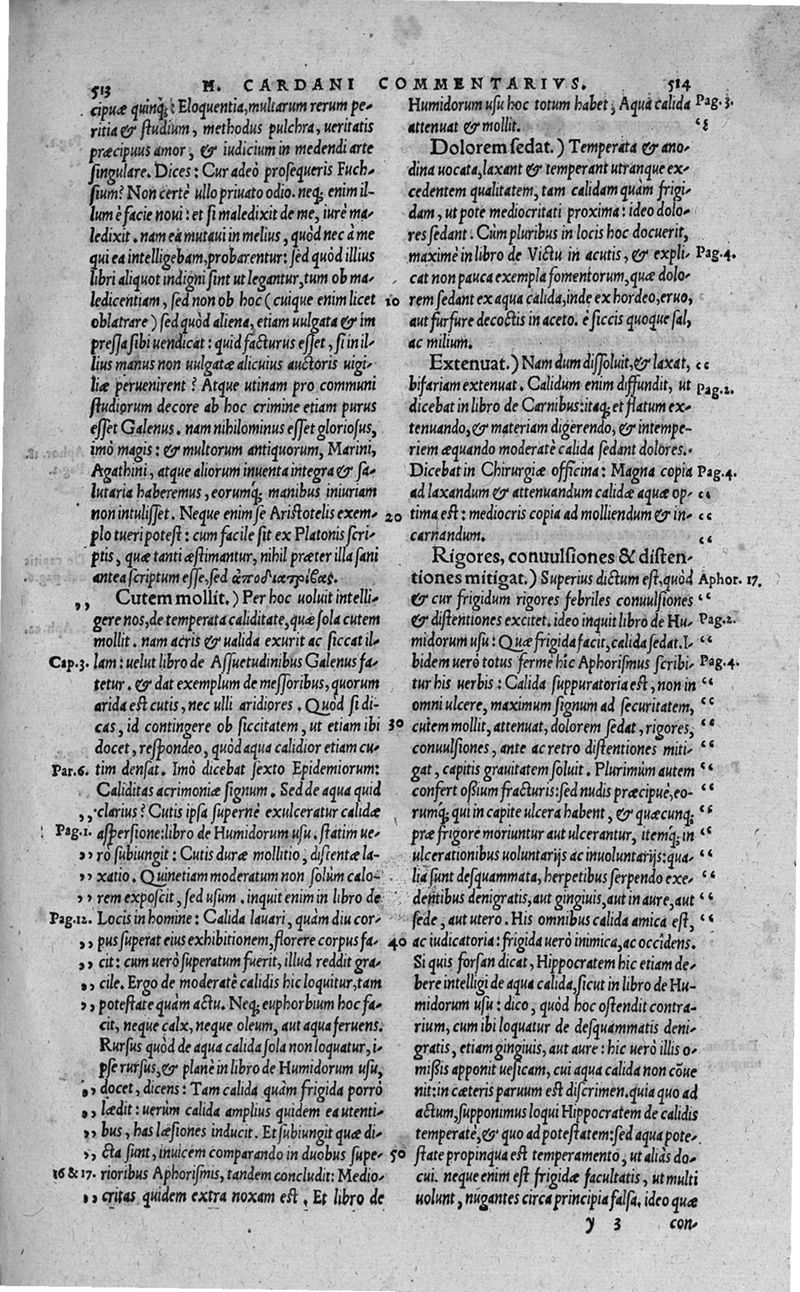 513 H. CARDANI COMMENTARIVS. 514
cipuæ quinq;: Eloquentia, multarum rerum pe-
ritia & studium, methodus pulchra, ueritatis
præcipuus amor, & iudicium in medendi arte
singulare. Dices: Cur adeò prosequeris Fuch-
sium? Non certè ullo priuato odio. neq; enim il-
lum è facie noui: et si maledixit de me, iurè ma-
ledixit. nam ea mutaui in melius, quòd nec à me
qui ea intelligebam, probarentur: sed quòd illius
libri aliquot indigni sint ut legantur, tum ob ma-
ledicentiam, sed non ob hoc (cuique enim licet
oblatrare) sed quòd aliena, etiam uulgata & im
pressa sibi uendicat: quid facturus esset, si in il-
lius manus non uulgatæ alicuius auctoris uigi-
liæ peruenirent? Atque utinam pro communi
studiorum decore ab hoc crimine etiam purus
esset Galenus. nam nihilominus esset gloriosus,
imò magis: & multorum antiquorum, Marini,
Agathini, atque aliorum inuenta integra & sa-
lutaria haberemus, eorumq; manibus iniuriam
non intulisset. Neque enim se Aristotelis exem-
plo tueri potest: cum facile sit ex Platonis scri-
ptis, quæ tanti æstimantur, nihil præter illa sani
antea scriptum esse, sed ἀποδιατριβάς.
,, Cutem mollit.) Per hoc uoluit intelli-
gere nos, de temperata caliditate, quæ sola cutem
mollit. nam acris & ualida exurit ac siccat il-
Cap.3. lam: uelut libro de Assuetudinibus Galenus fa-
tetur. & dat exemplum de messoribus, quorum
arida est cutis, nec ulli aridiores. Quòd si di-
cas, id contingere ob siccitatem, ut etiam ibi
docet, respondeo, quòd aqua calidior etiam cu-
Par.6. tim densat. Imò dicebat sexto Epidemiorum:
Caliditas acrimoniæ signum. Sed de aqua quid
,, clarius? Cutis ipsa supernè exulceratur calidæ
Pag.1. aspersione: libro de Humidorum usu. statim ue-
,, rò subiungit: Cutis duræ mollitio, distentæ la-
,, xatio. Quinetiam moderatum non solùm calo-
,, rem exposcit, sed usum. inquit enim in libro de
Pag.12. Locis in homine: Calida lauari, quàm diu cor-
,, pus superat eius exhibitionem, florere corpus fa-
,, cit: cum uerò superatum fuerit, illud reddit gra-
,, cile. Ergo de moderatè calidis hic loquitur, tam
,, potestate quàm actu. Neq; euphorbium hoc fa-
cit, neque calx, neque oleum, aut aqua feruens.
Rursus quòd de aqua calida sola non loquatur, i-
pse rursus, & planè in libro de Humidorum usu,
,, docet, dicens: Tam calida quàm frigida porrò
,, lædit: uerùm calida amplius quidem ea utenti-
,, bus, has læsiones inducit. Et subiungit quæ di-
,, cta sunt, inuicem comparando in duobus supe-
16 & 17. rioribus Aphorismis, tandem concludit: Medio-
,, critas quidem extra noxam est. Et libro de
Humidorum usu hoc totum habet; Aqua calida Pag.3.
attenuat & mollit. “
Dolorem sedat.) Temperata & ano-
dina uocata, laxant & temperant utranque ex-
cedentem qualitatem, tam calidam quàm frigi-
dam, ut pote mediocritati proxima: ideo dolo-
res sedant. Cùm pluribus in locis hoc docuerit,
maximè in libro de Victu in acutis, & expli- Pag.4.
cat non pauca exempla fomentorum, quæ dolo-
10 rem sedant ex aqua calida, inde ex hordeo, eruo,
aut furfure decoctis in aceto. è siccis quoque sal,
ac milium.
Extenuat.) Nam dum dissoluit, & laxat, “
bifariam extenuat. Calidum enim diffundit, ut Pag.2.
dicebat in libro de Carnibus: itaq; et flatum ex-
tenuando, & materiam digerendo, & intempe-
riem æquando moderatè calida sedant dolores.
Dicebat in Chirurgiæ officina: Magna copia Pag.4.
ad laxandum & attenuandum calidæ aquæ op- “
20 tima est: mediocris copia ad molliendum & in- “
carnandum. “
Rigores, conuulsiones & disten-
tiones mitigat.) Superius dictum est, quòd Aphor. 17.
& cur frigidum rigores febriles conuulsiones “
& distentiones excitet. ideo inquit libro de Hu- Pag.2.
midorum usu: Quæ frigida facit, calida sedat. I- “
bidem uerò totus fermè hic Aphorismus scribi- Pag.4.
tur his uerbis: Calida suppuratoria est, non in “
omni ulcere, maximum signum ad securitatem, “
30 cutem mollit, attenuat, dolorem sedat, rigores, “
conuulsiones, ante ac retro distentiones miti- “
gat, capitis grauitatem soluit. Plurimùm autem “
confert ossium fracturis: sed nudis præcipuè, eo- “
rumq; qui in capite ulcera habent, & quæcunq; “
præ frigore moriuntur aut ulcerantur, itemq; in “
ulcerationibus uoluntarijs ac inuoluntarijs: qua- “
lia sunt desquammata, herpetibus serpendo exe- “
dentibus denigratis, aut gingiuis, aut in aure, aut “
sede, aut utero. His omnibus calida amica est, “
40 ac iudicatoria: frigida uerò inimica, ac occidens.
Si quis forsan dicat, Hippocratem hic etiam de-
bere intelligi de aqua calida, sicut in libro de Hu-
midorum usu: dico, quòd hoc ostendit contra-
rium, cum ibi loquatur de desquammatis deni-
gratis, etiam gingiuis, aut aure: hic uerò illis o-
missis apponit uesicam, cui aqua calida non cōue
nit: in cæteris paruum est discrimen. quia quo ad
actum, supponimus loqui Hippocratem de calidis
temperatè, & quo ad potestatem: sed aqua pote-
50 state propinqua est temperamento, ut aliàs do-
cui. neque enim est frigidæ facultatis, ut multi
uolunt, nugantes circa principia falsa. ideo quæ
y 3 con-